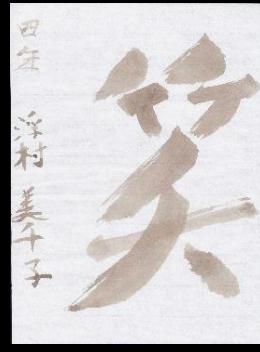 笑
四年
浮村 美千子